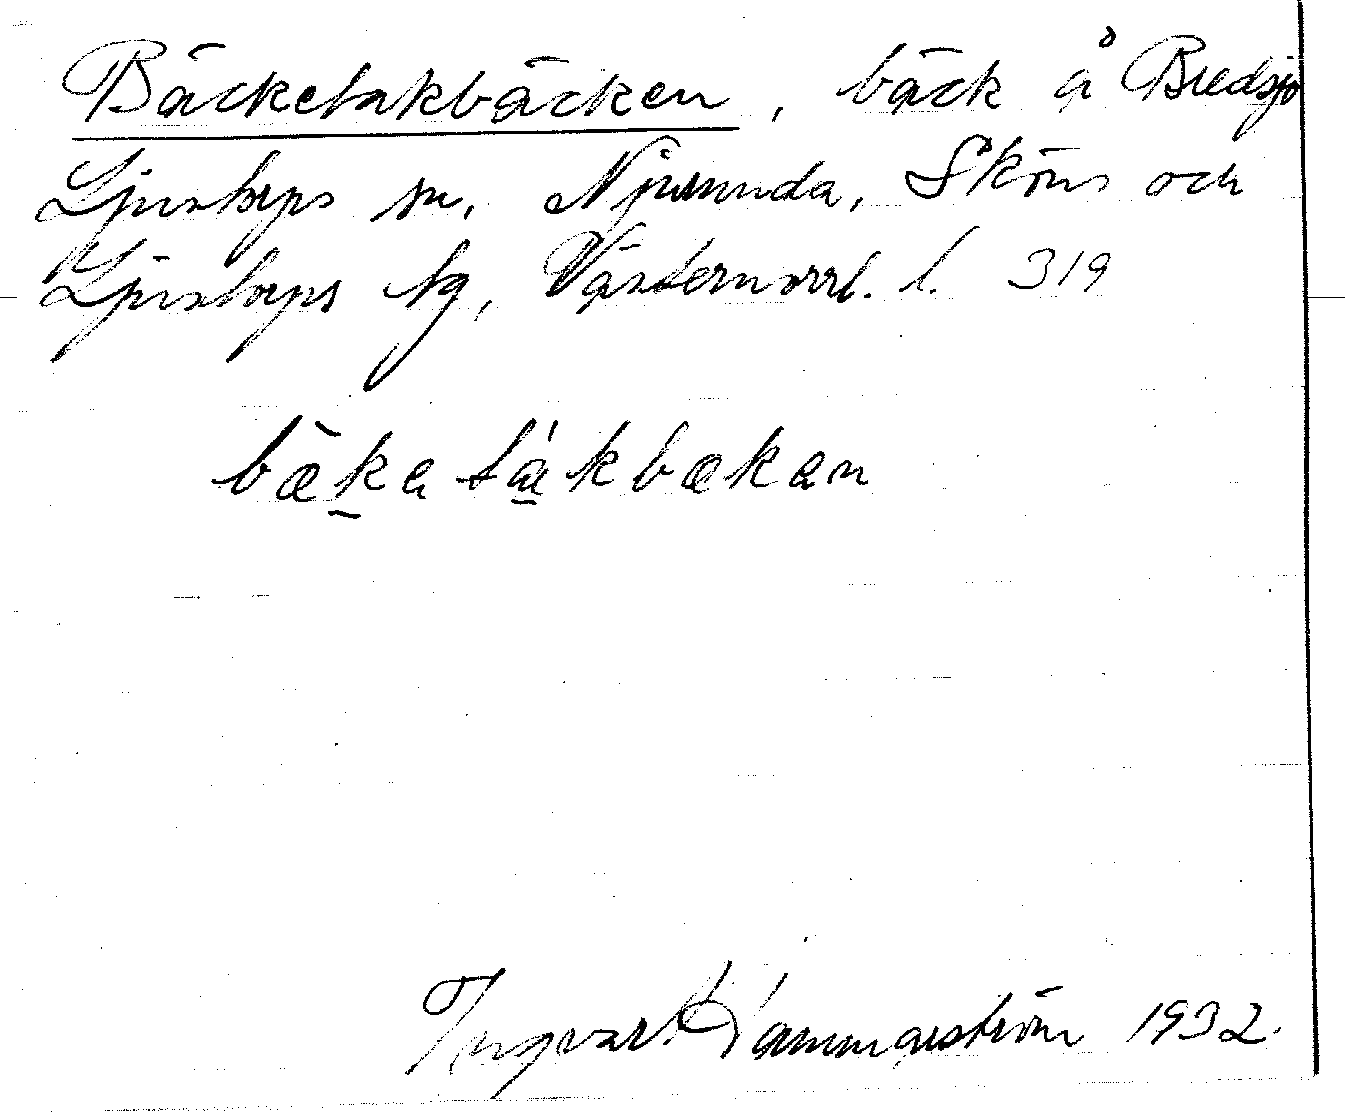 Bäcketakbäcken, bäck å Bredsjö
Ljustorps sn, Njurunda, Sköns och
Ljustorps tg, Västernorrl. l. 319
bæ̀ka tákbækan
Ingvar Hammarström 1932.